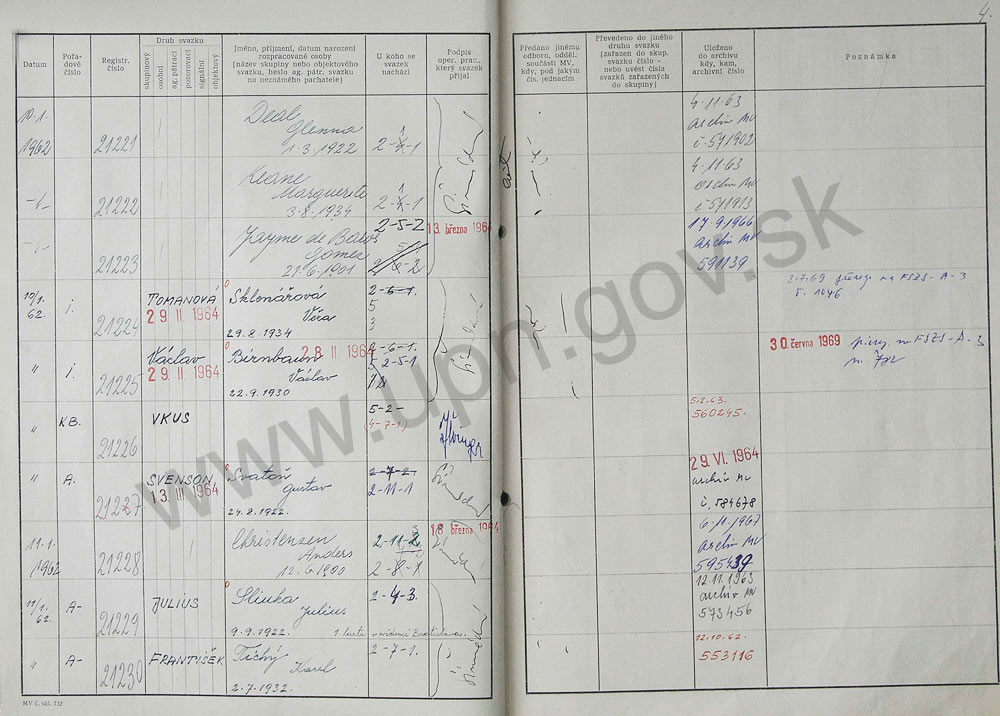 4.
Datum
Pořadové číslo
Registr. číslo
Druh svazku
skupinový
osobní
ag. pátrací
pozorovací
signální
objektový
Jméno, příjmení, datum narození
rozpracované osoby
(název skupiny nebo objektového
svazku, heslo ag. pátr. svazku
na neznámého pachatele)
U koho se
svazek
nachází
Podpis
oper. prac.,
který svazek
přijal
Předáno jinému
odboru, odděl.
součásti MV,
kdy, pod jakým
čís. jednacím
Převedeno do jiného
druhu svazku
(zařazen do skup.
svazku číslo -
nebo uvést čísla
svazků zařazených
do skupiny)
Uloženo
do archivu
kdy, kam,
archivní číslo
Poznámka
10.1.
1962
21221
Deal
Glenna
1.3.1922
2-X-1
4.11.63
Archiv MV
č. 571902
21222
Keane
Marguerite
3.8.1934
2-X-1
4.11.63
Archiv MV
č. 571913
21223
Jayme de Batos
Gomes
21.6.1901
2-5-2
13. března 1964
17.9.1966
Archiv MV
591139
10/1.
62.
i.
21224
TOMANOVÁ
29 II 1964
Sklenářová
Věra
29.8.1934
2-6-1.
5
3
3.7.69
na FSZS-A-3
č. 1046
"
i.
21225
Václav
29 II 1964
Birnbaum
28 II 1964
Václav
22.9.1930
2-6-1.
5 2-5-1
30. června 1969
na FSZS-A-3
"
KB.
21226
VKUS
5-2-
(4-7-1)
5.2.63.
560245.
"
A.
21227
SVENSON
13 III 1964
Svatoň
Gustav
24.8.1922.
2-7-2.
2-11-1
29. VI. 1964
archiv MV
č. 584678
11.1.
1962
21228
Christenzen
Anders
12.6.1900
2-11-2
2-X-1
18 března 1964
6.11.1967
Archiv MV
595439
11/1.
62.
A-
21229
JULIUS
Sliuka
Julius
9.9.1922.
2-4-3.
12.11.1963
archiv MV
573456
"
A-
21230
FRANTIŠEK
Tichý
Karel
2.7.1932.
2-7-1.
12.10.62.
553116
MV č. skl. 732
www.upn.gov.sk